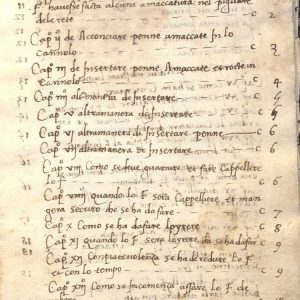 F havesse fatta alcuna amaccatura nel pigliare
dele rete c 2
Cap° ij de Acconciare penne amaccate in lo
cannolo c 3
Cap° iij de Insertare penne Amaccate et rocte in
cannolo c 4
Cap° iiij de Insertare c 4
Cap° v altramanera de insertare c 4
Cap° vj altramanera de Insertare penne c
Cap° vij altramanera de Insertare c
Cap° viij Como se deve guarnire et fare Cappellere
lo F c 6
Cap° viiij quando lo F serà Cappellere et man
gera securo che se ha da fare c 7
Cap° x Como se ha da fare logrere c 8
Cap° xj quando lo F serà logrere che se ha da fare c 9
Cap° xij Con se ha de redure lo F
con lo tempo c
Cap° xiij Como se incomenza affare lo F de